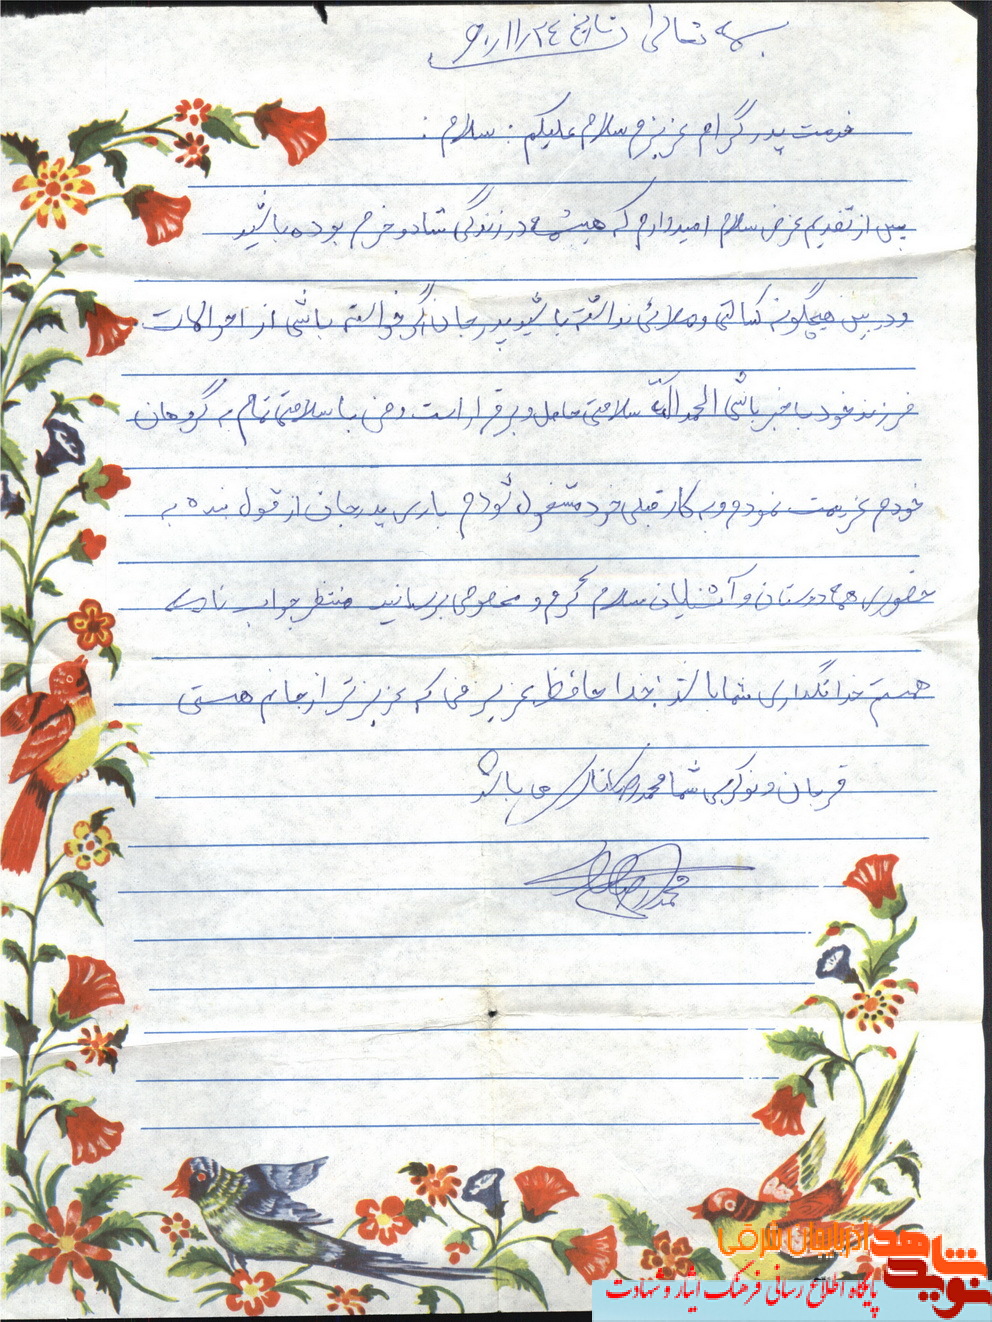 بسمه تعالی تاریخ
خدمت پدر گرام عزیزم سلام علیکم : سلام :
پس از تقدیم عرض سلام امیدوارم که همیشه در زندگی شاد و خرم بوده باشید
و در پس هیچگونه کسالتی و ملالی نداشته باشید پدر جان اگر خواسته باشی از احوالات
فرزند خود باخبر باشی الحمدالله سلامتی حاصل و برقرار است و من با سلامتی تمام به گروهان
خودم عزیمت نمودم و به کار قبلی خود مشغول شدم باری پدر جان از قول بنده به
حضور همه دوستان و آشنایان سلام گرم و مخصوص برسانید منتظر جواب نامه
هستم خدا نگهدار شما باشد خدا حافظ من که عزیزتر از جانم هستی
قربان و نوکر شما محمدرضا می باشد
محمدرضا
شاهد
نوید
آذربایجان شرقی
پایگاه اطلاع رسانی فرهنگ ایثار و شهادت